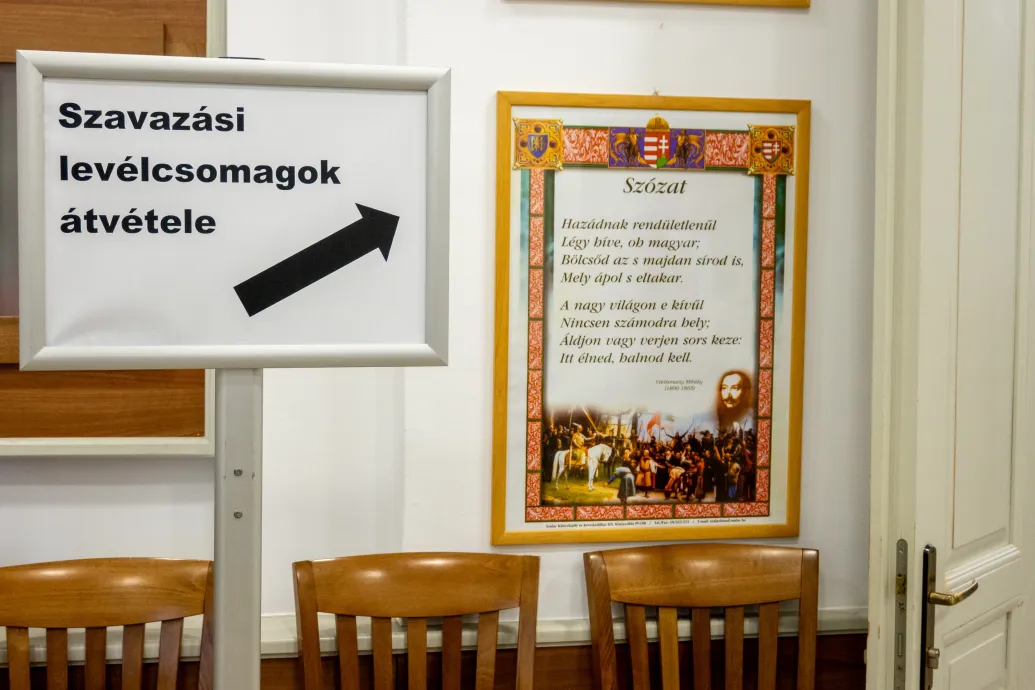 Szavazási
levélcsomagok
átvétele
Szózat
Hazádnak rendületlenűl
Légy híve, oh magyar;
Bölcsőd az s majdan sírod is,
Mely ápol s eltakar.
A nagy világon e kívűl
Nincsen számodra hely;
Áldjon vagy verjen sors keze:
Itt élned, halnod kell.
Vörösmarty Mihály
(1800-1855)